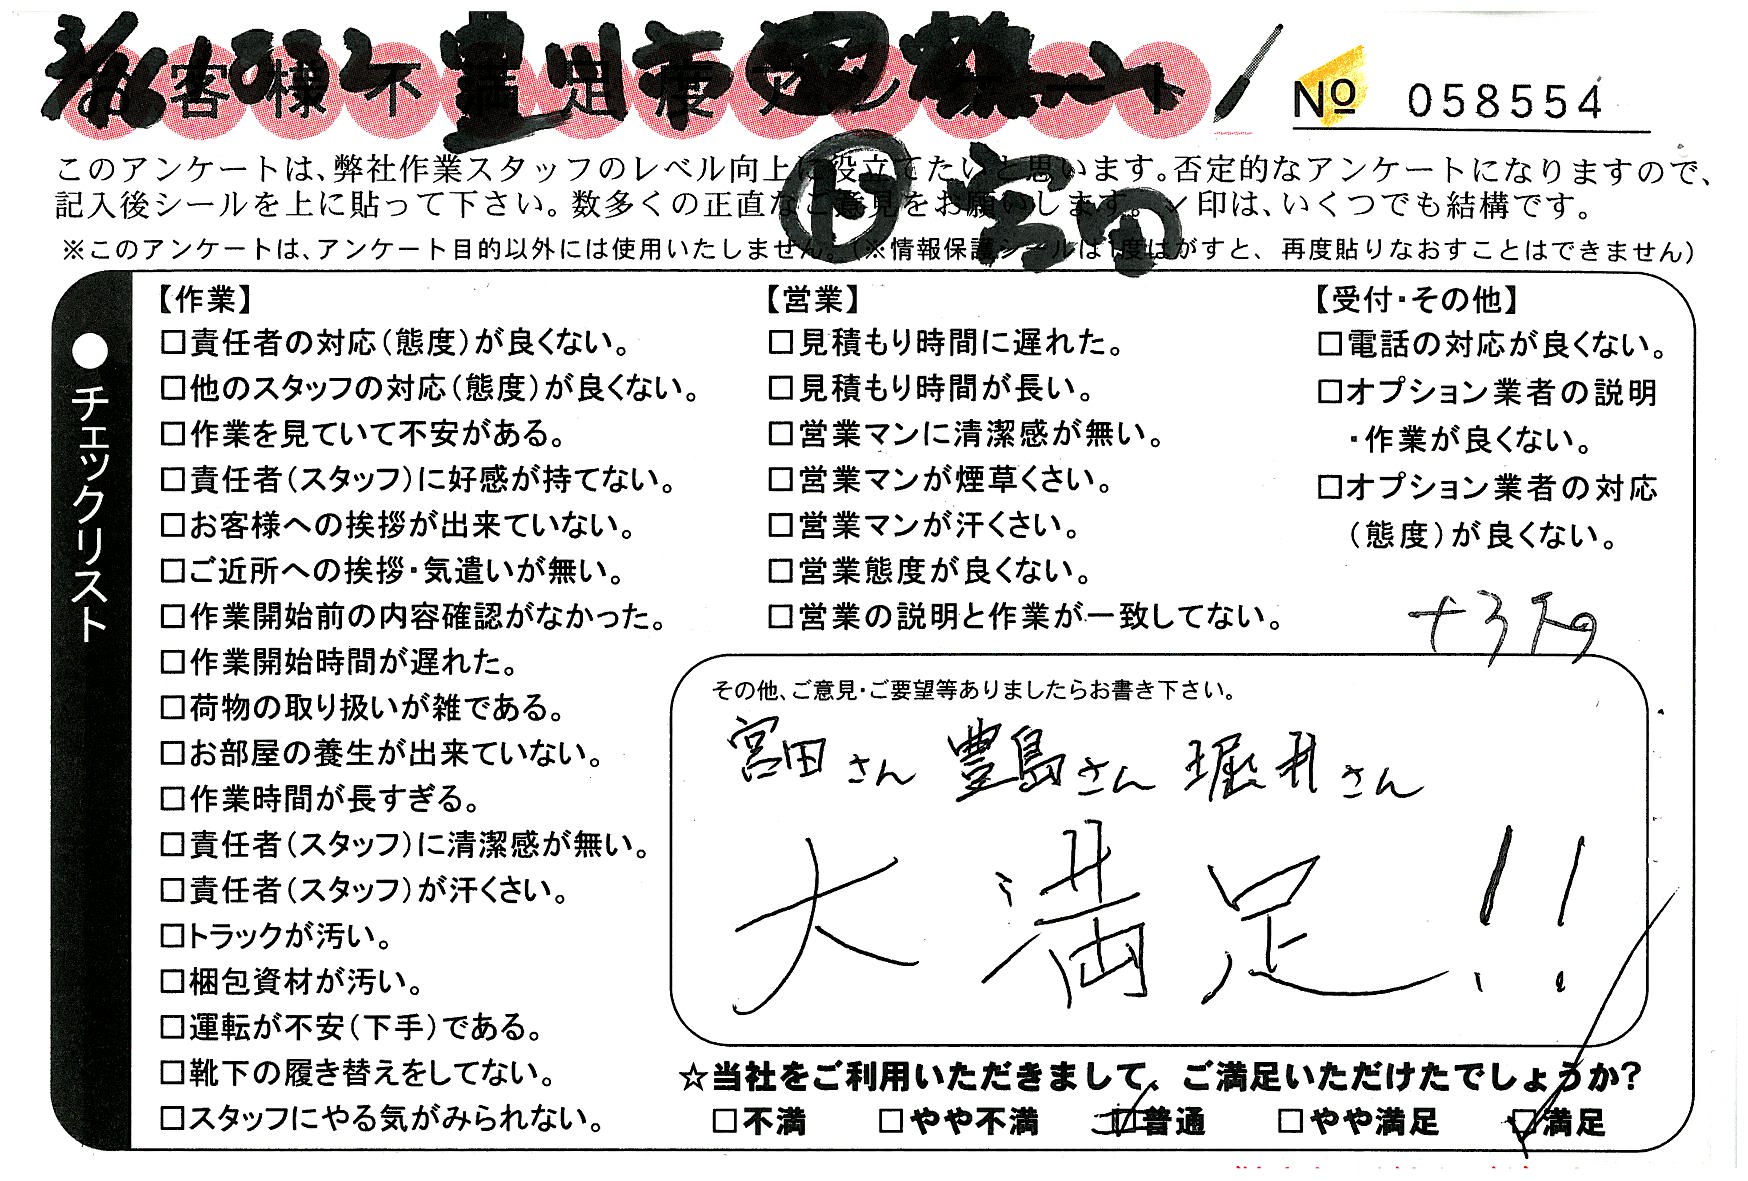 お客様不満足度アンケート
No 058554
このアンケートは、弊社作業スタッフのレベル向上に役立てたいと思います。否定的なアンケートになりますので、
記入後シールを上に貼って下さい。数多くの正直なご意見をお願いします。✓印は、いくつでも結構です。
※このアンケートは、アンケート目的以外には使用いたしません。(※情報保護シールは1度はがすと、再度貼りなおすことはできません)
●チェックリスト
【作業】
□責任者の対応(態度)が良くない。
□他のスタッフの対応(態度)が良くない。
□作業を見ていて不安がある。
□責任者(スタッフ)に好感が持てない。
□お客様への挨拶が出来ていない。
□ご近所への挨拶・気遣いが無い。
□作業開始前の内容確認がなかった。
□作業開始時間が遅れた。
□荷物の取り扱いが雑である。
□お部屋の養生が出来ていない。
□作業時間が長すぎる。
□責任者(スタッフ)に清潔感が無い。
□責任者(スタッフ)が汗くさい。
□トラックが汚い。
□梱包資材が汚い。
□運転が不安(下手)である。
□靴下の履き替えをしてない。
□スタッフにやる気がみられない。
【営業】
□見積もり時間に遅れた。
□見積もり時間が長い。
□営業マンに清潔感が無い。
□営業マンが煙草くさい。
□営業マンが汗くさい。
□営業態度が良くない。
□営業の説明と作業が一致してない。
【受付・その他】
□電話の対応が良くない。
□オプション業者の説明
・作業が良くない。
□オプション業者の対応
(態度)が良くない。
その他、ご意見・ご要望等ありましたらお書き下さい。
宮田さん 豊島さん 堀井さん
大満足!!
☆当社をご利用いただきまして、ご満足いただけたでしょうか?
□不満 □やや不満 □普通 □やや満足 □満足